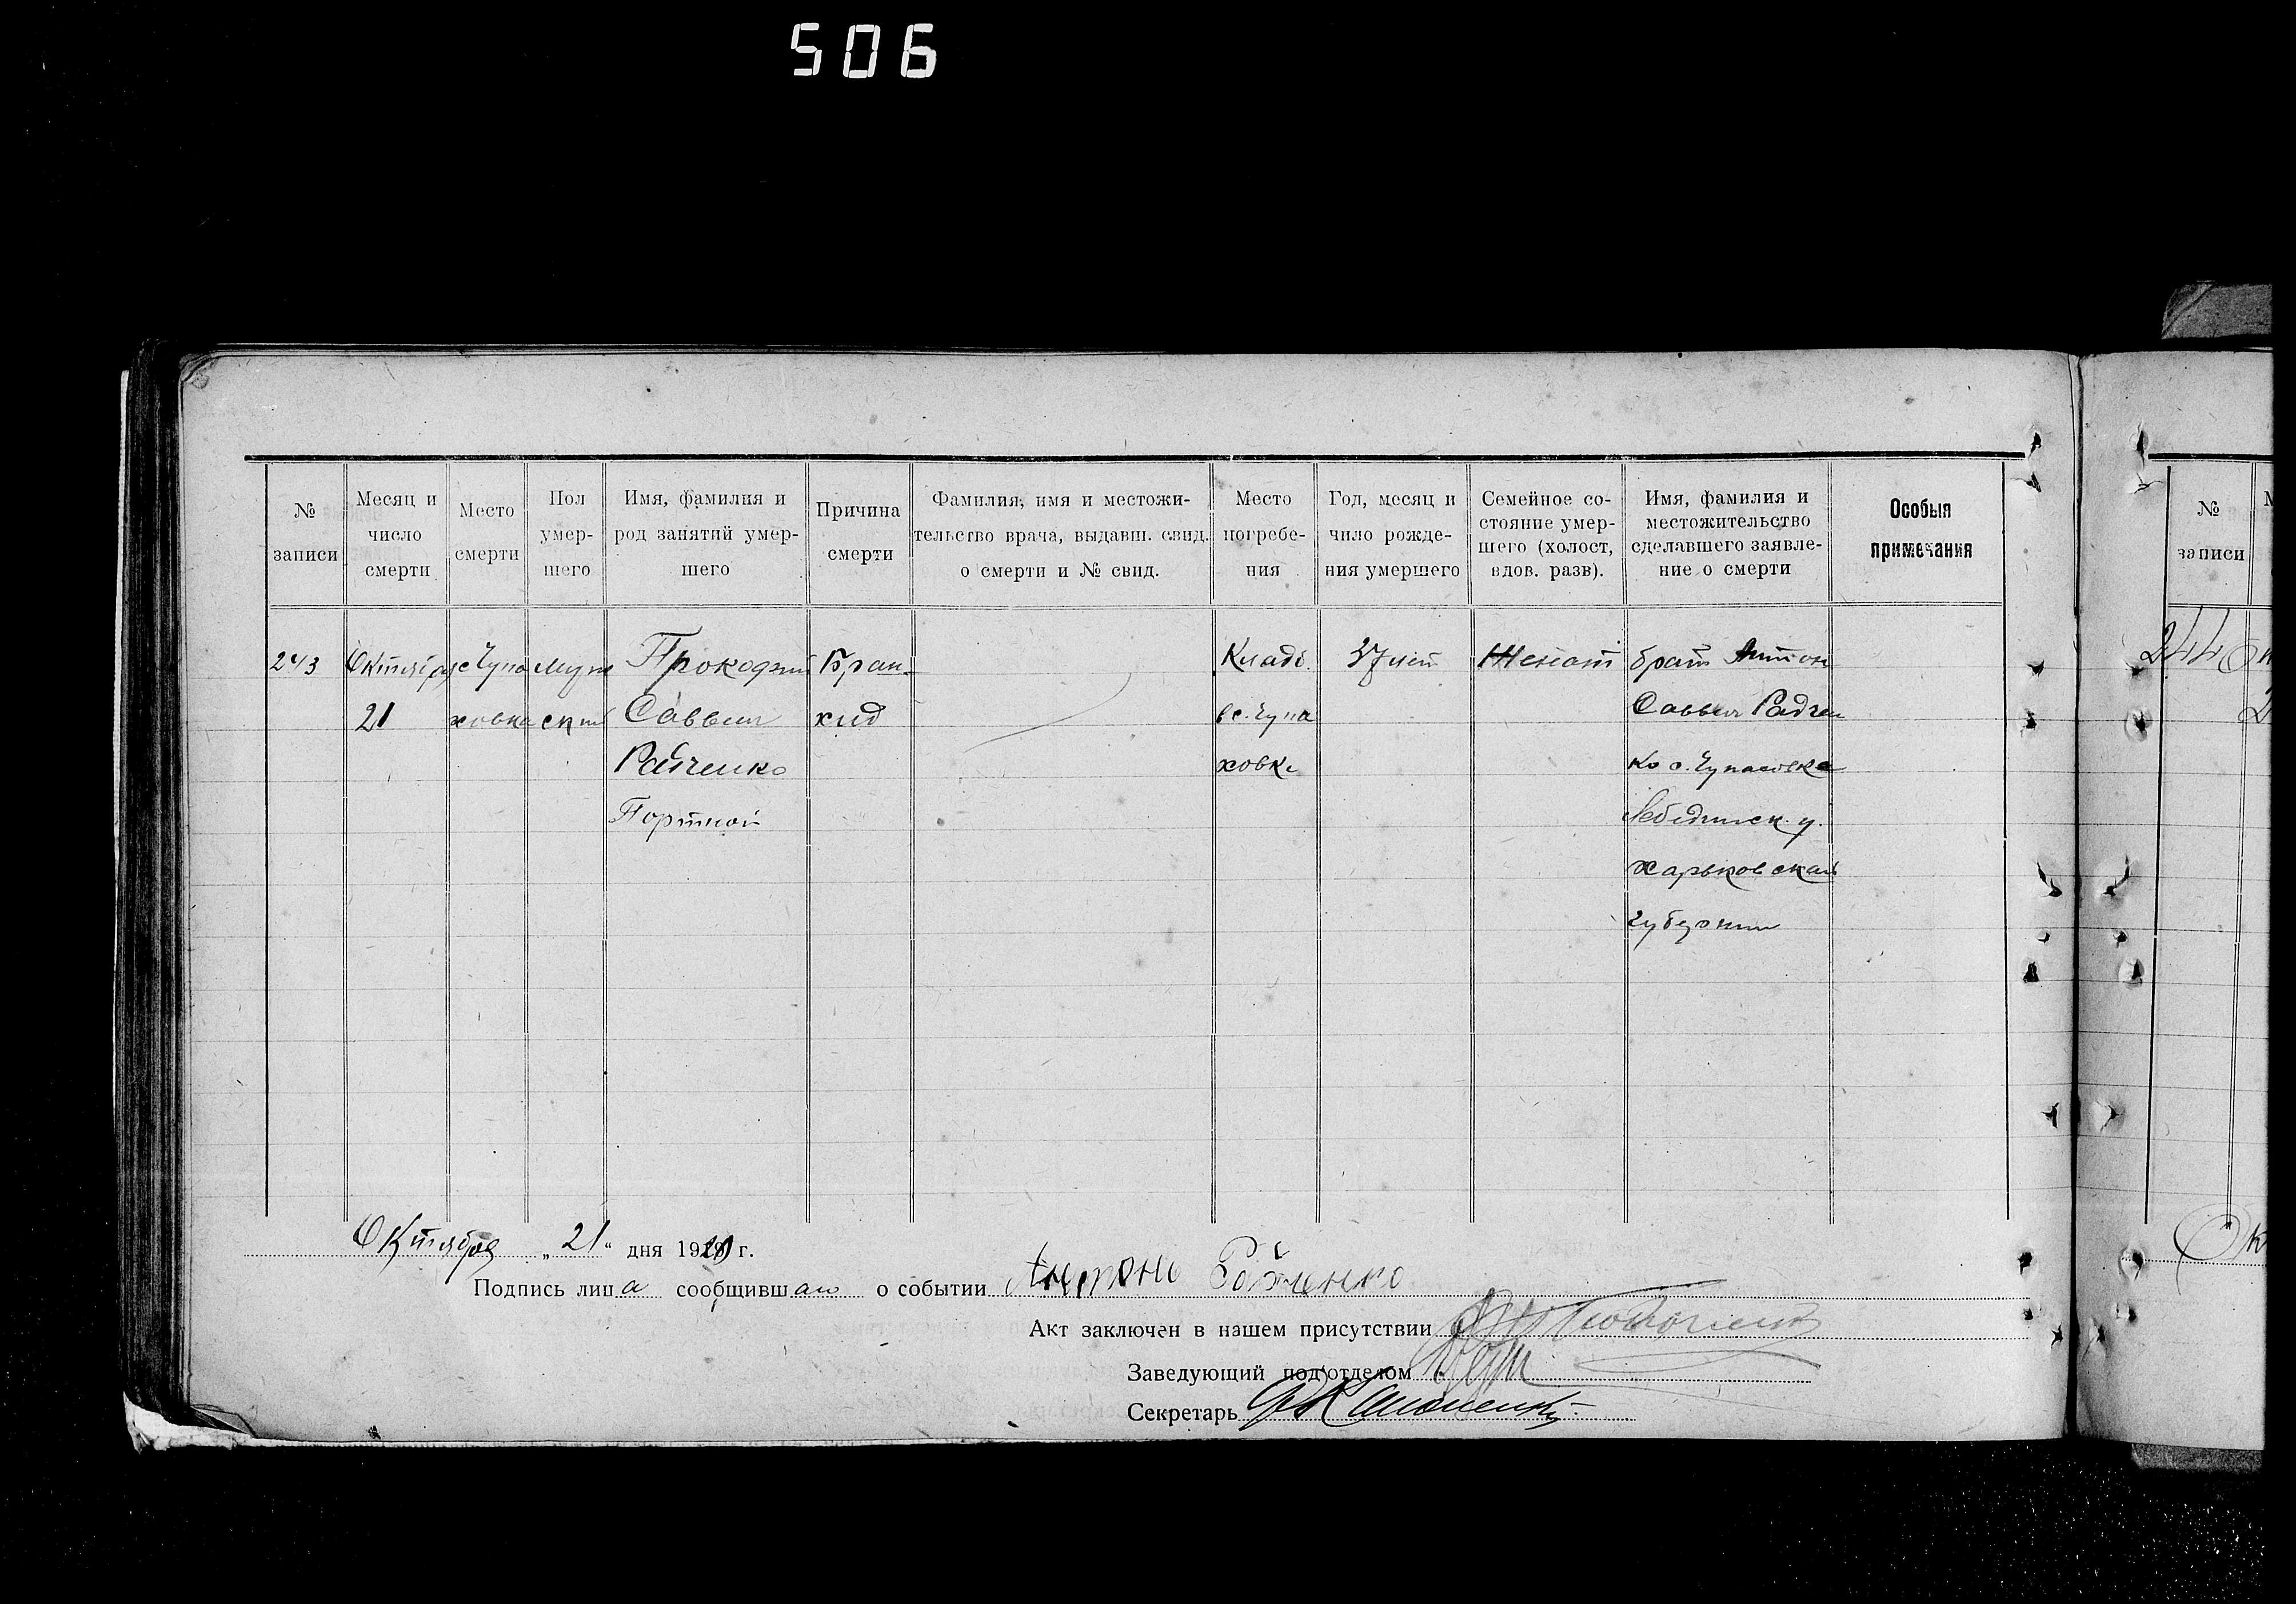 506
№ записи
Месяц и число смерти
Место смерти
Пол умер- шего
Имя, фамилия и род занятий умер- шего
Причина смерти
Фамилия, имя и местожи- тельство врача, выдавш. свид. о смерти и № свид.
Место погребе- ния
Год, месяц и чило рожде- ния умершего
Семейное со- стояние умер- шего (холост, вдов. разв).
Имя, фамилия и местожительство сделавшего заявле- ние о смерти
Особыя примечания
243
Октября
21
с Чупа
ховка
Муж
ский
Прокофий
Саввич
Радченко
Портной
Бран-
хид
Кладб.
в с. Чупа
ховке
37 лет
Женат
брат Антон
Саввич Радчен
ко с. Чупаховка
Лебединск. у.
Харьковской
губернии
Октября „21“ дня 1920 г.
Подпись лица сообщившаго о событии Антонъ Радченко
Акт заключен в нашем присутствии
Заведующий под'отделом
Секретарь
№
записи
244